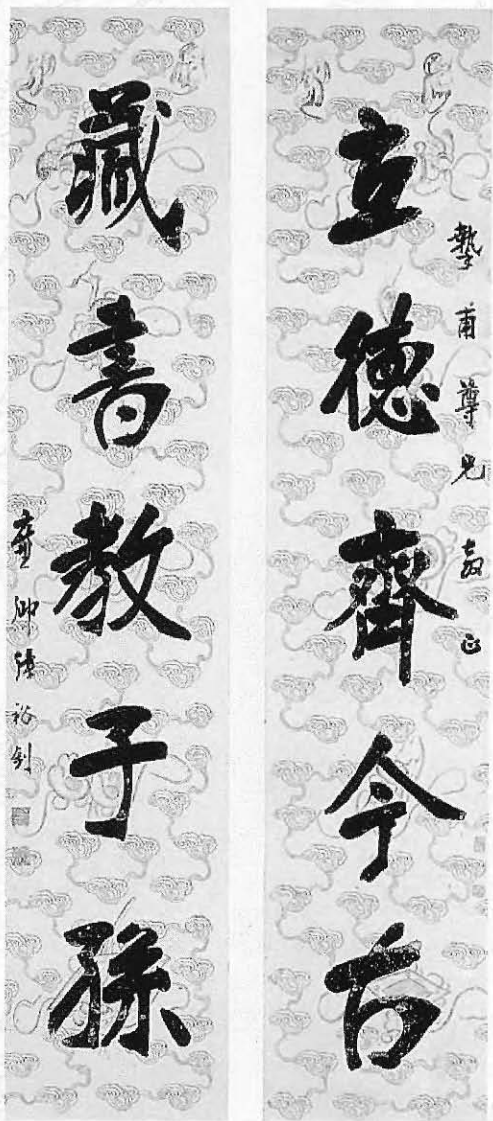 立德齊今古
摯甫尊兄教正
藏書教子孫
廉卿張裕釗